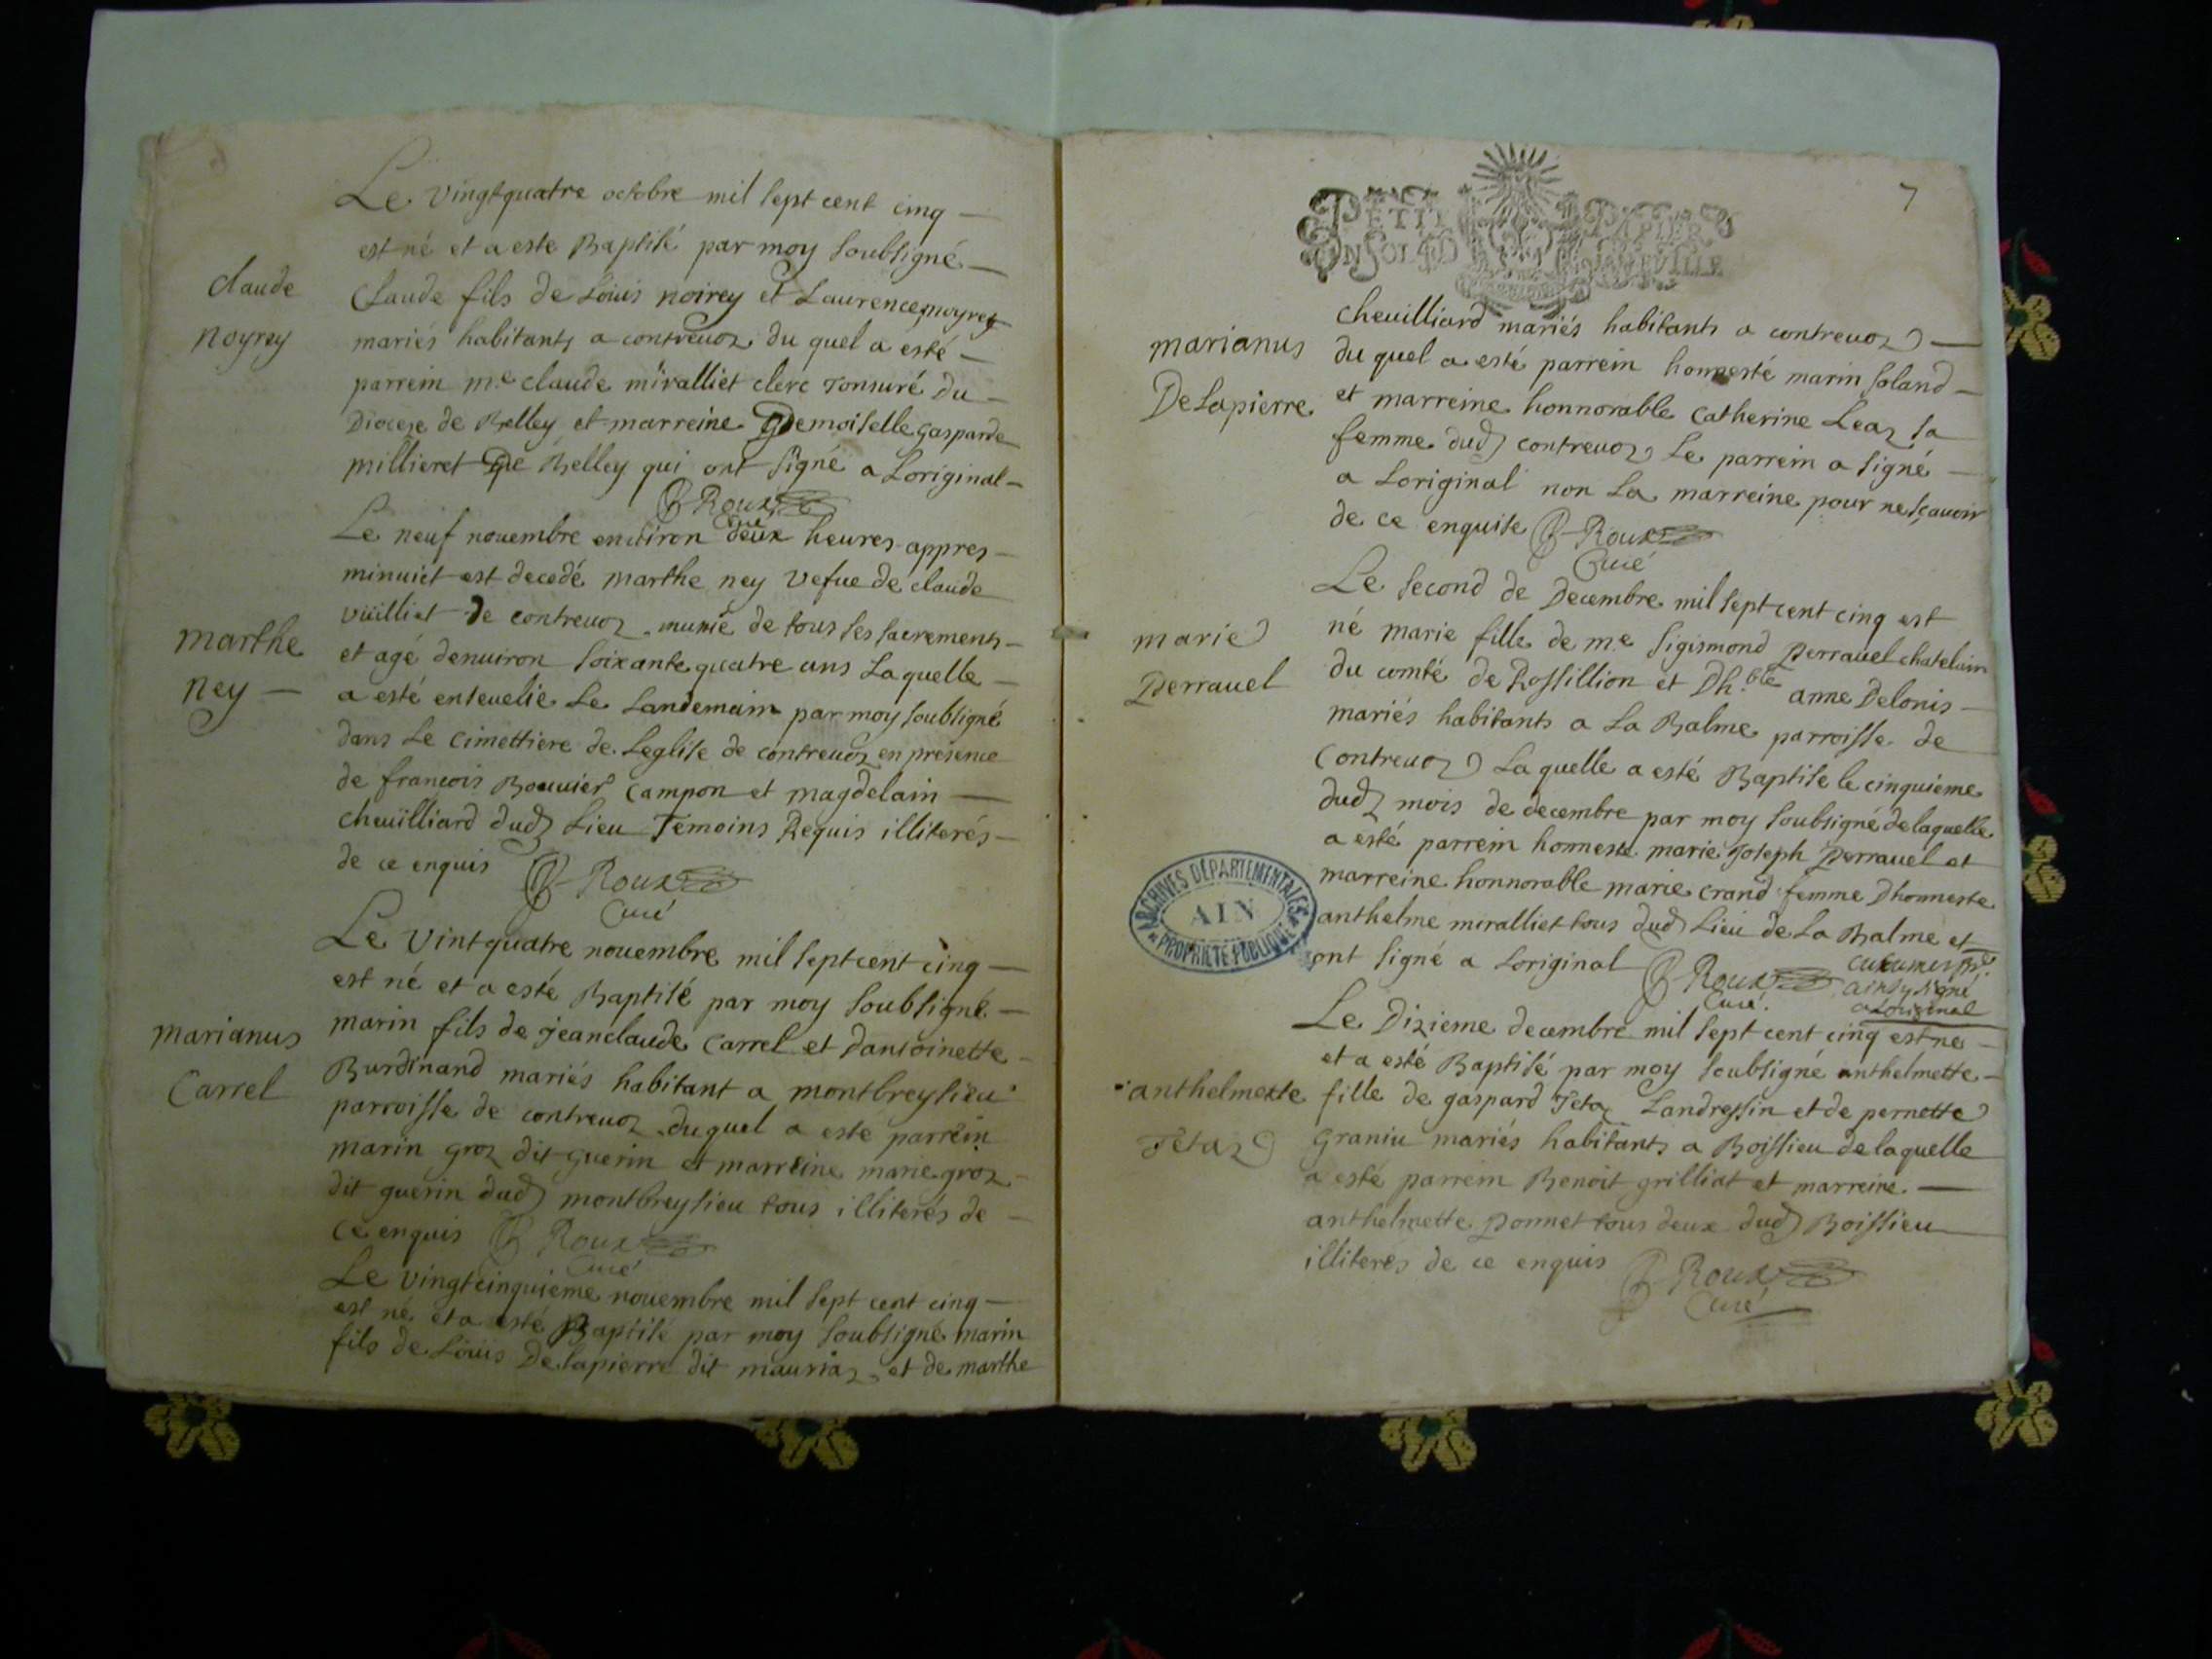 Le vingtquatre octobre mil sept cent cinq
est né et a este Baptisé par moy soubsigné
claude
Claude fils de Loüis noirey et Laurence noyrey
noyrey
mariés habitants a contrevoz du quel a esté
parrein me claude miralliet clerc tonsuré du
Diocese de Belley et marreine Demoiselle gasparde
millieret De Belley qui ont signé a Loriginal
Roux
Curé
Le neuf novembre environ deux heures appres
minuict est decedé marthe ney vefue de claude
vuilliet de contrevoz munie de tous ses sacrements
marthe
et agé denviron soixante quatre ans Laquelle
ney
a esté ensevelie Le Landemain par moy soubsigné
dans Le cimettiere de Leglise de contrevoz en presence
de francois Bouvier Campon et magdelain
chevilliard dud Lieu Temoins Requis illiterés
de ce enquis Roux
Curé
Le Vintquatre novembre mil sept cent cinq
est né et a esté Baptisé par moy soubsigné
marianus
marin fils de jeanclaude Carrel et dantoinette
Carrel
Burdinand mariés habitant a montbreysieu
parroisse de contrevoz duquel a este parrein
marin groz dit guerin et marreine marie groz
dit guerin dud montbreysieu tous illiterés de
ce enquis Roux
Curé
Le vingtcinquieme novembre mil sept cent cinq
est né et a esté Baptisé par moy soubsigné marin
fils de Loüis Delapierre dit mauriaz et de marthe
7
PETIT PAPIER
UN SOL 4 D LA FEUILLE
chevilliard mariés habitants a contrevoz
marianus
du quel a esté parrein honnesté marin soland
Delapierre
et marreine honnorable Catherine Leaz sa
femme dud contrevoz Le parrein a signé
a Loriginal non La marreine pour ne sçavoir
de ce enquise Roux
Curé
Le second de Decembre mil sept cent cinq est
marie
né marie fille de me sigismond perravel chatelain
Perravel
du comté de Rossillion et Dh.ble anne Delonis
mariés habitants a La Balme parroisse de
Contrevoz Laquelle a esté Baptisé le cinquieme
dud mois de decembre par moy soubsigné delaquelle
a esté parrein honneste marie Joseph perravel et
marreine honnorable marie crand femme Dhonneste
anthelme miralliet tous dud Lieu de La Balme et
ont signé a Loriginal Roux
Curé.
ainsy signé
a Loriginal
ARCHIVES DÉPARTEMENTALES
AIN
PROPRIÉTÉ PUBLIQUE
Le Dixieme decembre mil sept cent cinq est né
et a esté Baptisé par moy soubsigné anthelmette
anthelmette
fille de gaspard Tetaz Landressin et de pernette
Tetaz
Graniu mariés habitants a Boissieu de laquelle
a esté parrein Benoit grilliat et marreine
anthelmette ponnet tous deux dud Boissieu
illiteres de ce enquis Roux
Curé